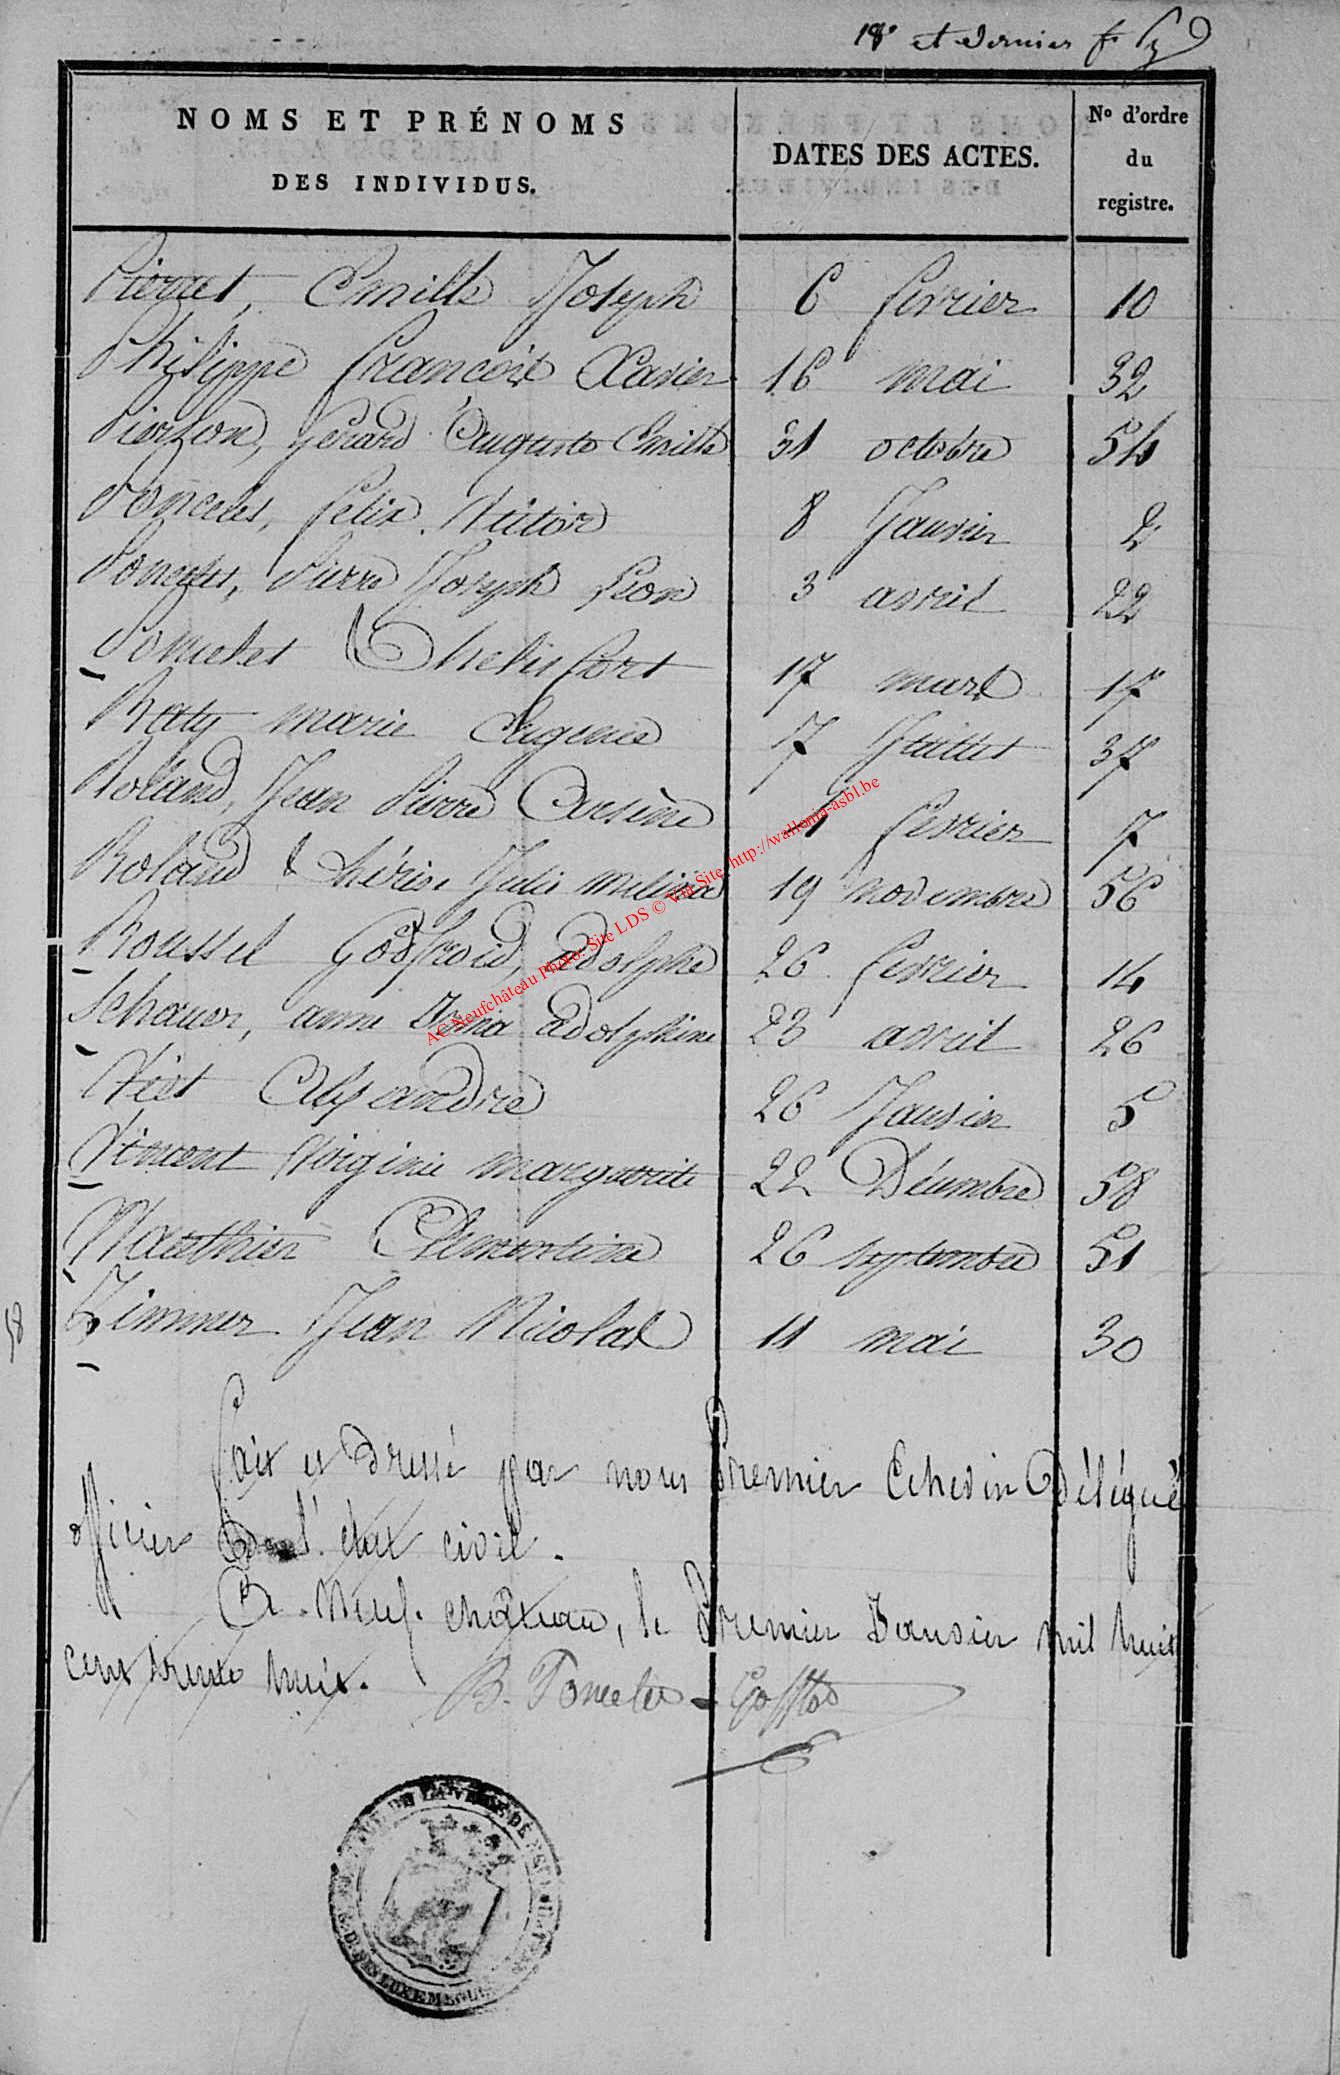 18e et dernier f
NOMS ET PRÉNOMS
DES INDIVIDUS.
DATES DES ACTES.
No d'ordre
du
registre.
Pierret, Emille Joseph 6 fevrier 10
Philippe françois Xavier 16 mai 32
Pierson, Gérard Auguste Emille 31 octobre 54
Poncelet, felix Victor 8 Janvier 2
Poncelet, Pierre Joseph Léon 3 avril 22
Poncelet 17 mars 17
Raty marie Eugenie 7 Juillet 37
Roland, Jean Pierre Arsène 1 fevrier 7
Roland Thérèse Julie 19 novembre 56
Roussel Godfroid, adolphe 26 fevrier 14
Schauer, anne Irma adolphine 23 avril 26
Viet Alexandre 26 Janvier 5
Vincent Virginie marguerite 22 Décembre 58
Wauthier Clementine 26 septembre 51
Zimmer Jean Nicolas 11 mai 30
58
fait et dressé par nous Premier Echevin Délégué
officier de l'état civil.
A Neufchâteau, le Premier Janvier mil huit
cent trente huit. B. Poncelet
AC Neufchâteau Photo: Site LDS © Via Site: http://wallonia-asbl.be